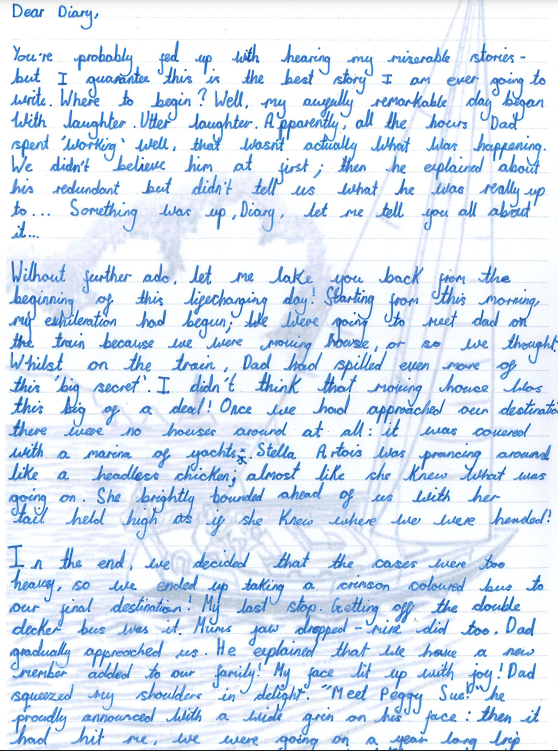 Dear Diary,
You're probably fed up with hearing my miserable stories -
but I guarantee this is the best story I am ever going to
write. Where to begin? Well, my awfully remarkable day began
With laughter. Utter laughter. Apparently, all the hours Dad
spent 'working' well, that wasnt actually what was happening.
We didn't believe him at first; then he explained about
his redundant but didn't tell us what he was really up
to... Something was up, Diary, let me tell you all about
it...
Without further ado, let me take you back from the
beginning of this lifechanging day! Starting from this morning,
my exhileration had begun; We were going to meet dad on
the train because we were moving house, or so we thought
Whilst on the train, Dad had spilled even more of
this 'big secret'. I didn't think that moving house was
this big of a deal! Once we had approached our destinatio
there were no houses around at all: it was covered
with a marina of yachts; Stella Artois was prancing around
like a headless chicken; almost like she knew what was
going on. She brightly bounded ahead of us with her
tail held high as if she knew where we were headed!
In the end, we decided that the cases were too
heavy, so we ended up taking a crimson coloured bus to
our final destination! My last stop. Getting off the double
decker bus was it. Mums jaw dropped - mine did too. Dad
gradually approached us. He explained that we have a new
member added to our family! My face lit up with joy! Dad
squeezed my shoulders in delight. "Meet Peggy Sue!" he
proudly announced with a wide grin on his face: then it
had hit me, we were going on a year long trip